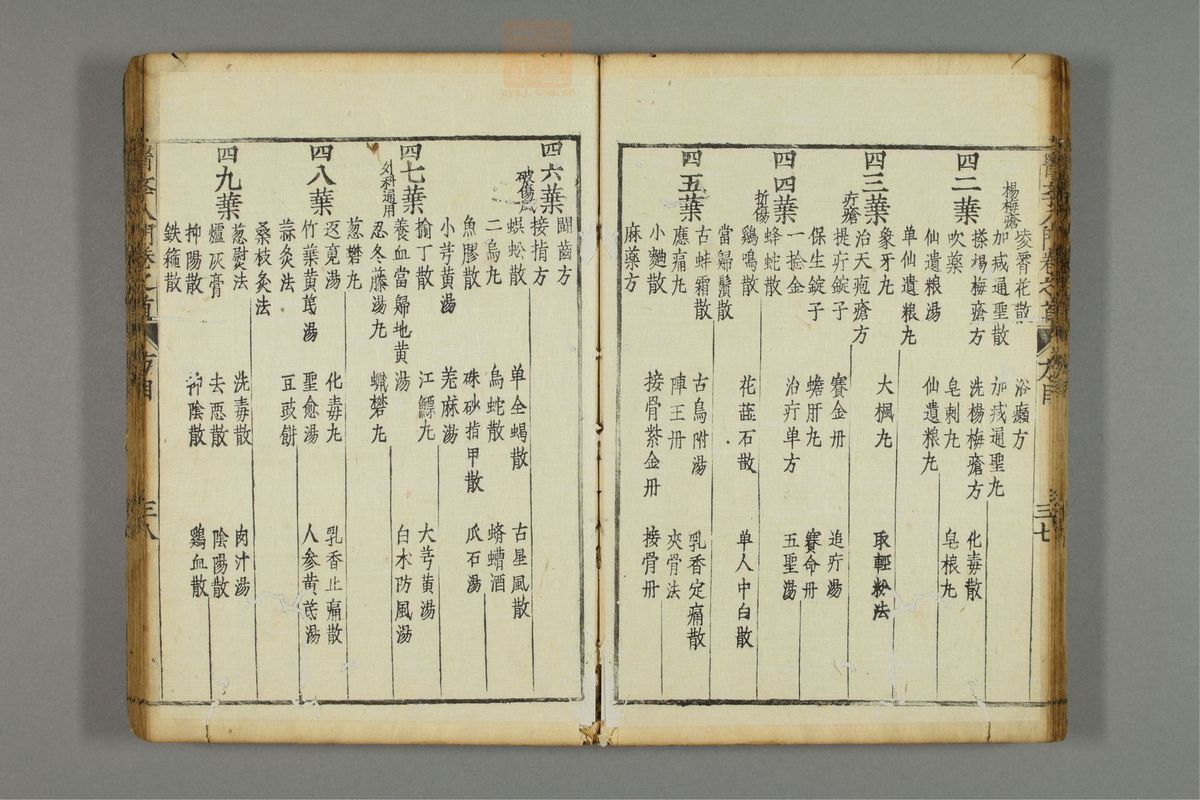 楊梅瘡
四二葉
四三葉
疔瘡
四四葉
折傷
四五葉
凌霄花散 浴癩方
加減通聖散 加減通聖丸
搽楊梅瘡方 洗楊梅瘡方 化毒散
吹藥 皂刺丸 皂根丸
仙遺粮湯 仙遺粮丸
单仙遺粮丸
象牙丸 大楓丸 取輕粉法
治天疱瘡方
提疔錠子 賽金丹 追疔湯
保生錠子 蟾肝丸 賽命丹
一捻金 治疔单方 五聖湯
蜂蛇散
鷄鳴散 花蕋石散 单人中白散
當歸鬚散
古蚌霜散 古烏附湯 乳香定痛散
應痛丸 陣王丹 夾骨法
小麯散 接骨紫金丹 接骨丹
麻藥方
三七
四六葉
破傷風
四七葉
外科通用
四八葉
四九葉
鬪齒方
接指方
蜈蚣散 单全蝎散 古星風散
二烏丸 烏蛇散 蠐螬酒
魚膠散 硃砂指甲散 瓜石湯
小芎黄湯 羌麻湯
榆丁散 江鰾丸 大芎黄湯
養血當歸地黄湯 白朮防風湯
忍冬藤湯丸 蠟礬丸
葱礬丸
返魂湯 化毒丸 乳香止痛散
竹葉黄芪湯 聖愈湯 人参黄芪湯
蒜灸法 豆豉餅
桑枝灸法
葱熨法 洗毒散 肉汁湯
爐灰膏 去惡散 陰陽散
抑陽散 抑陰散 鷄血散
鉄箍散
三八